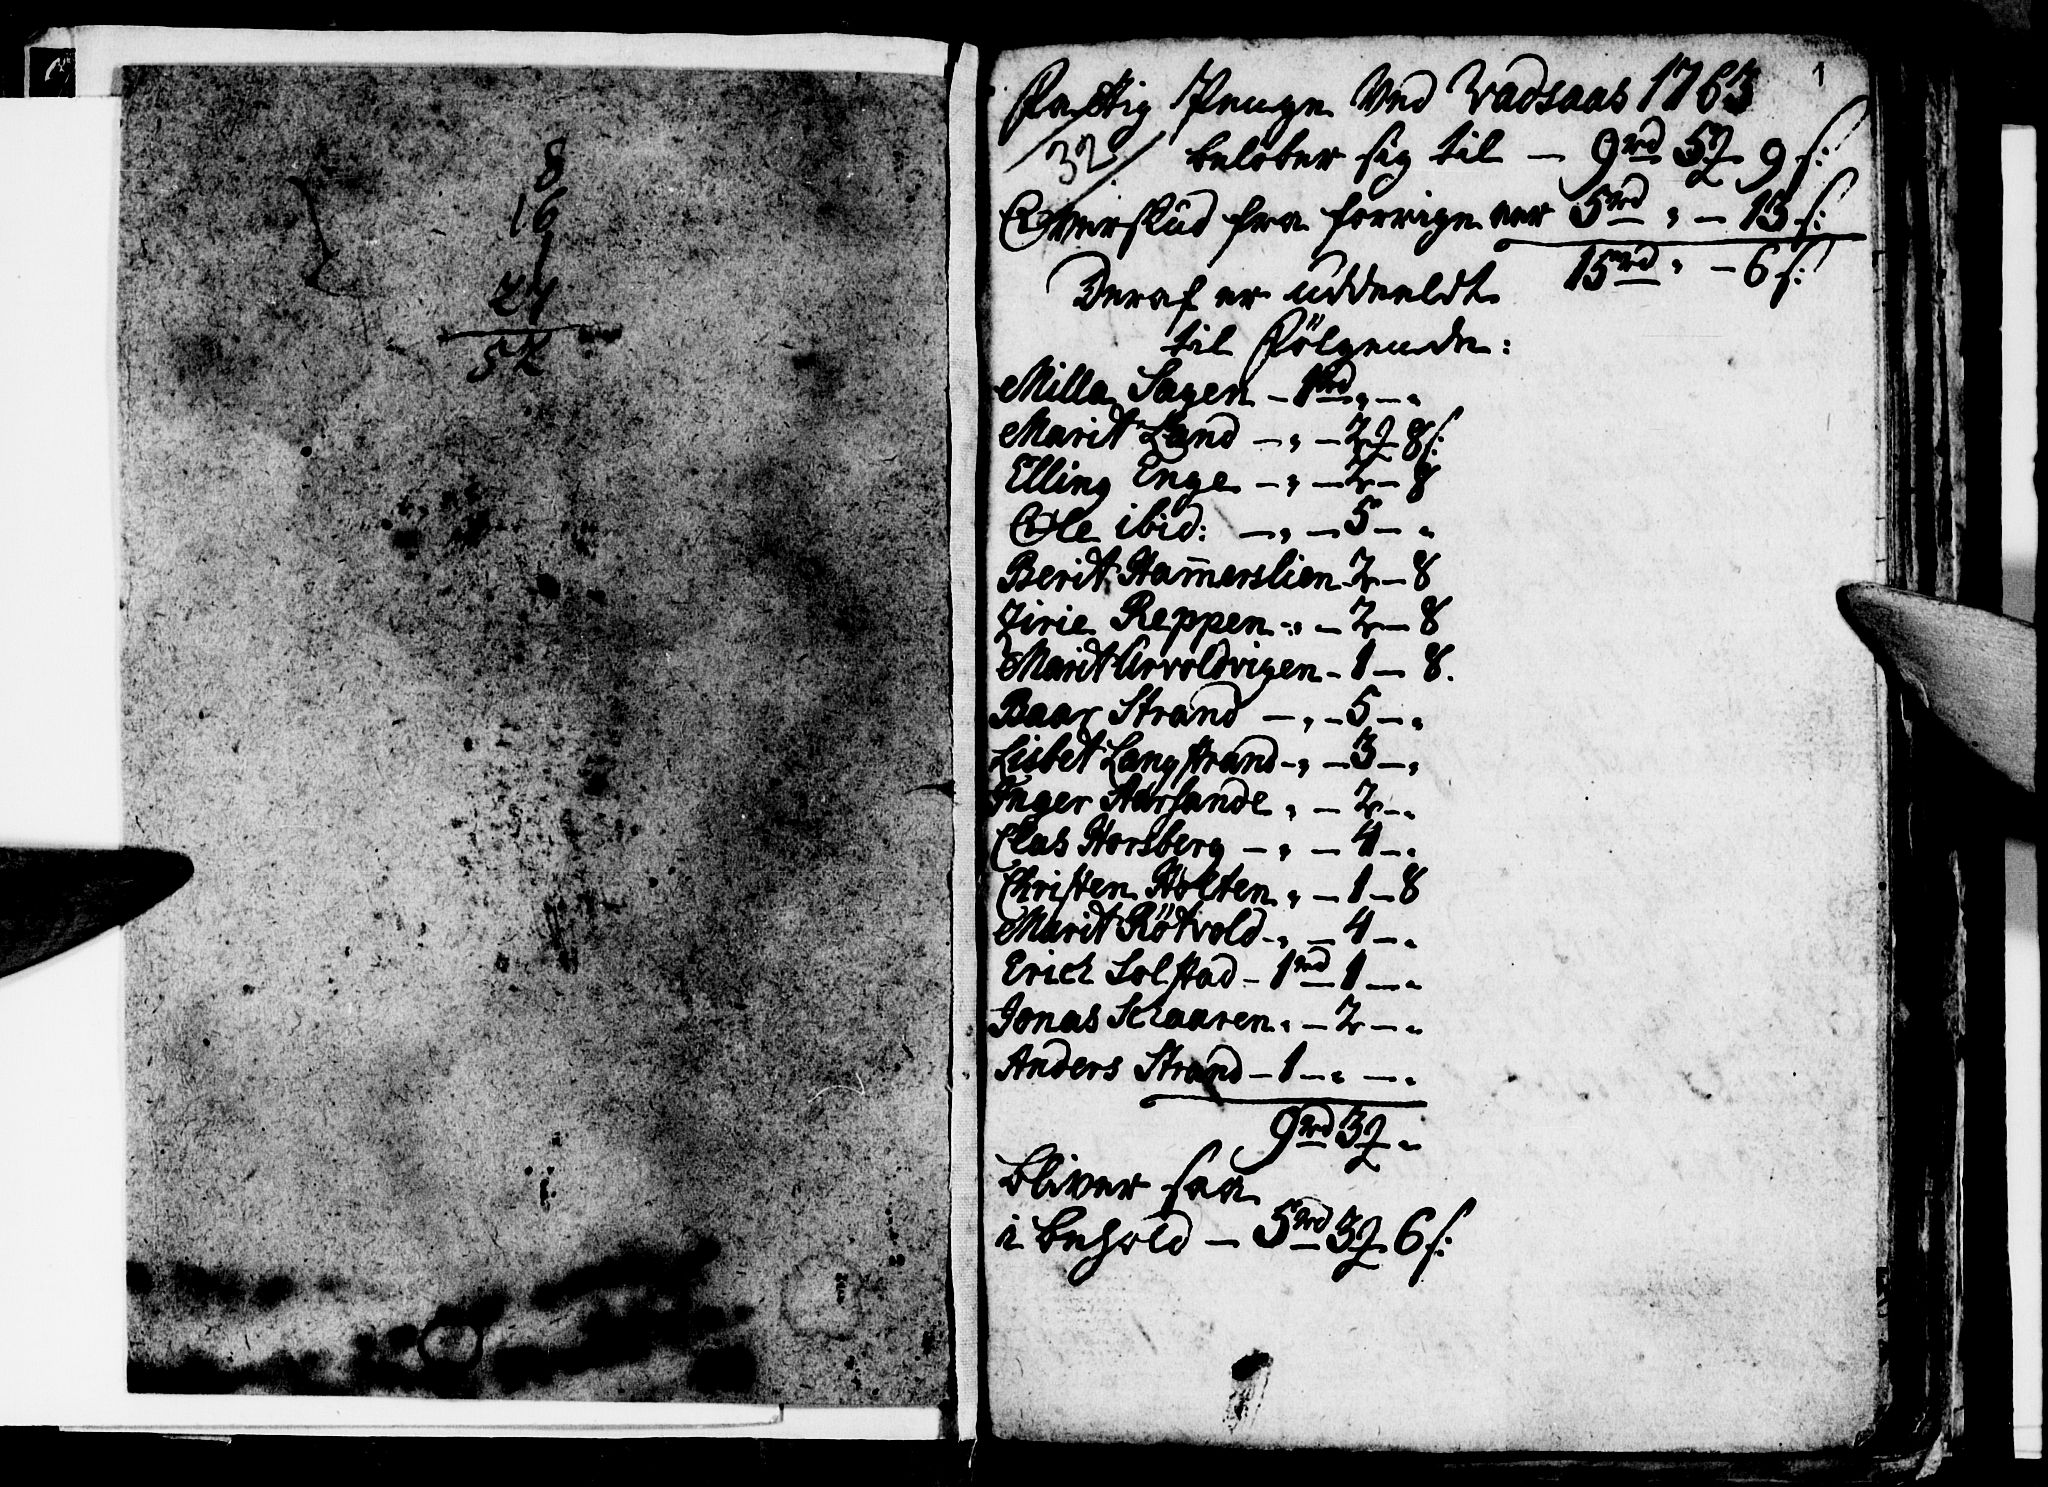 8
16
1
27
52
1
Fattig Penge Ved Vadsaas 1763
32
belober sig til — 9 rd 5 ₰ 9 s:
Overskud fra forrige aar 5 rd „ — 13 s:
15 rd „ — 6 s:
Deraf er uddeeldt
til Fölgende:
Milla Sagen — 1 rd „ — „
Marit Land — „ — 2 ₰ 8 s:
Elling Enge — „ — 2 — 8
Ole ibid: — „ — 5 — „
Berit Ham̄erslien 2 — 8
Zirie Reppen „ — 2 — 8
Marit Arvoldvigen — 1 — 8.
Baar Strand — „ — 5 — „
Lisbet Langstrand — „ — 3 — „
Inger Aarsande „ — 2 — „
Clas Horsberg — „ — 4 — „
Christen Holten „ — 1 — 8
Marit Rötvold — „ — 4 — „
Erich Solstad — 1 rd 1 — „
Jonas Schaaren „ — 2 — „
Anders Strand — 1 — „ — „
9 rd 3 ₰ „
bliver saa
i behold — 5 rd 3 ₰ 6 s: